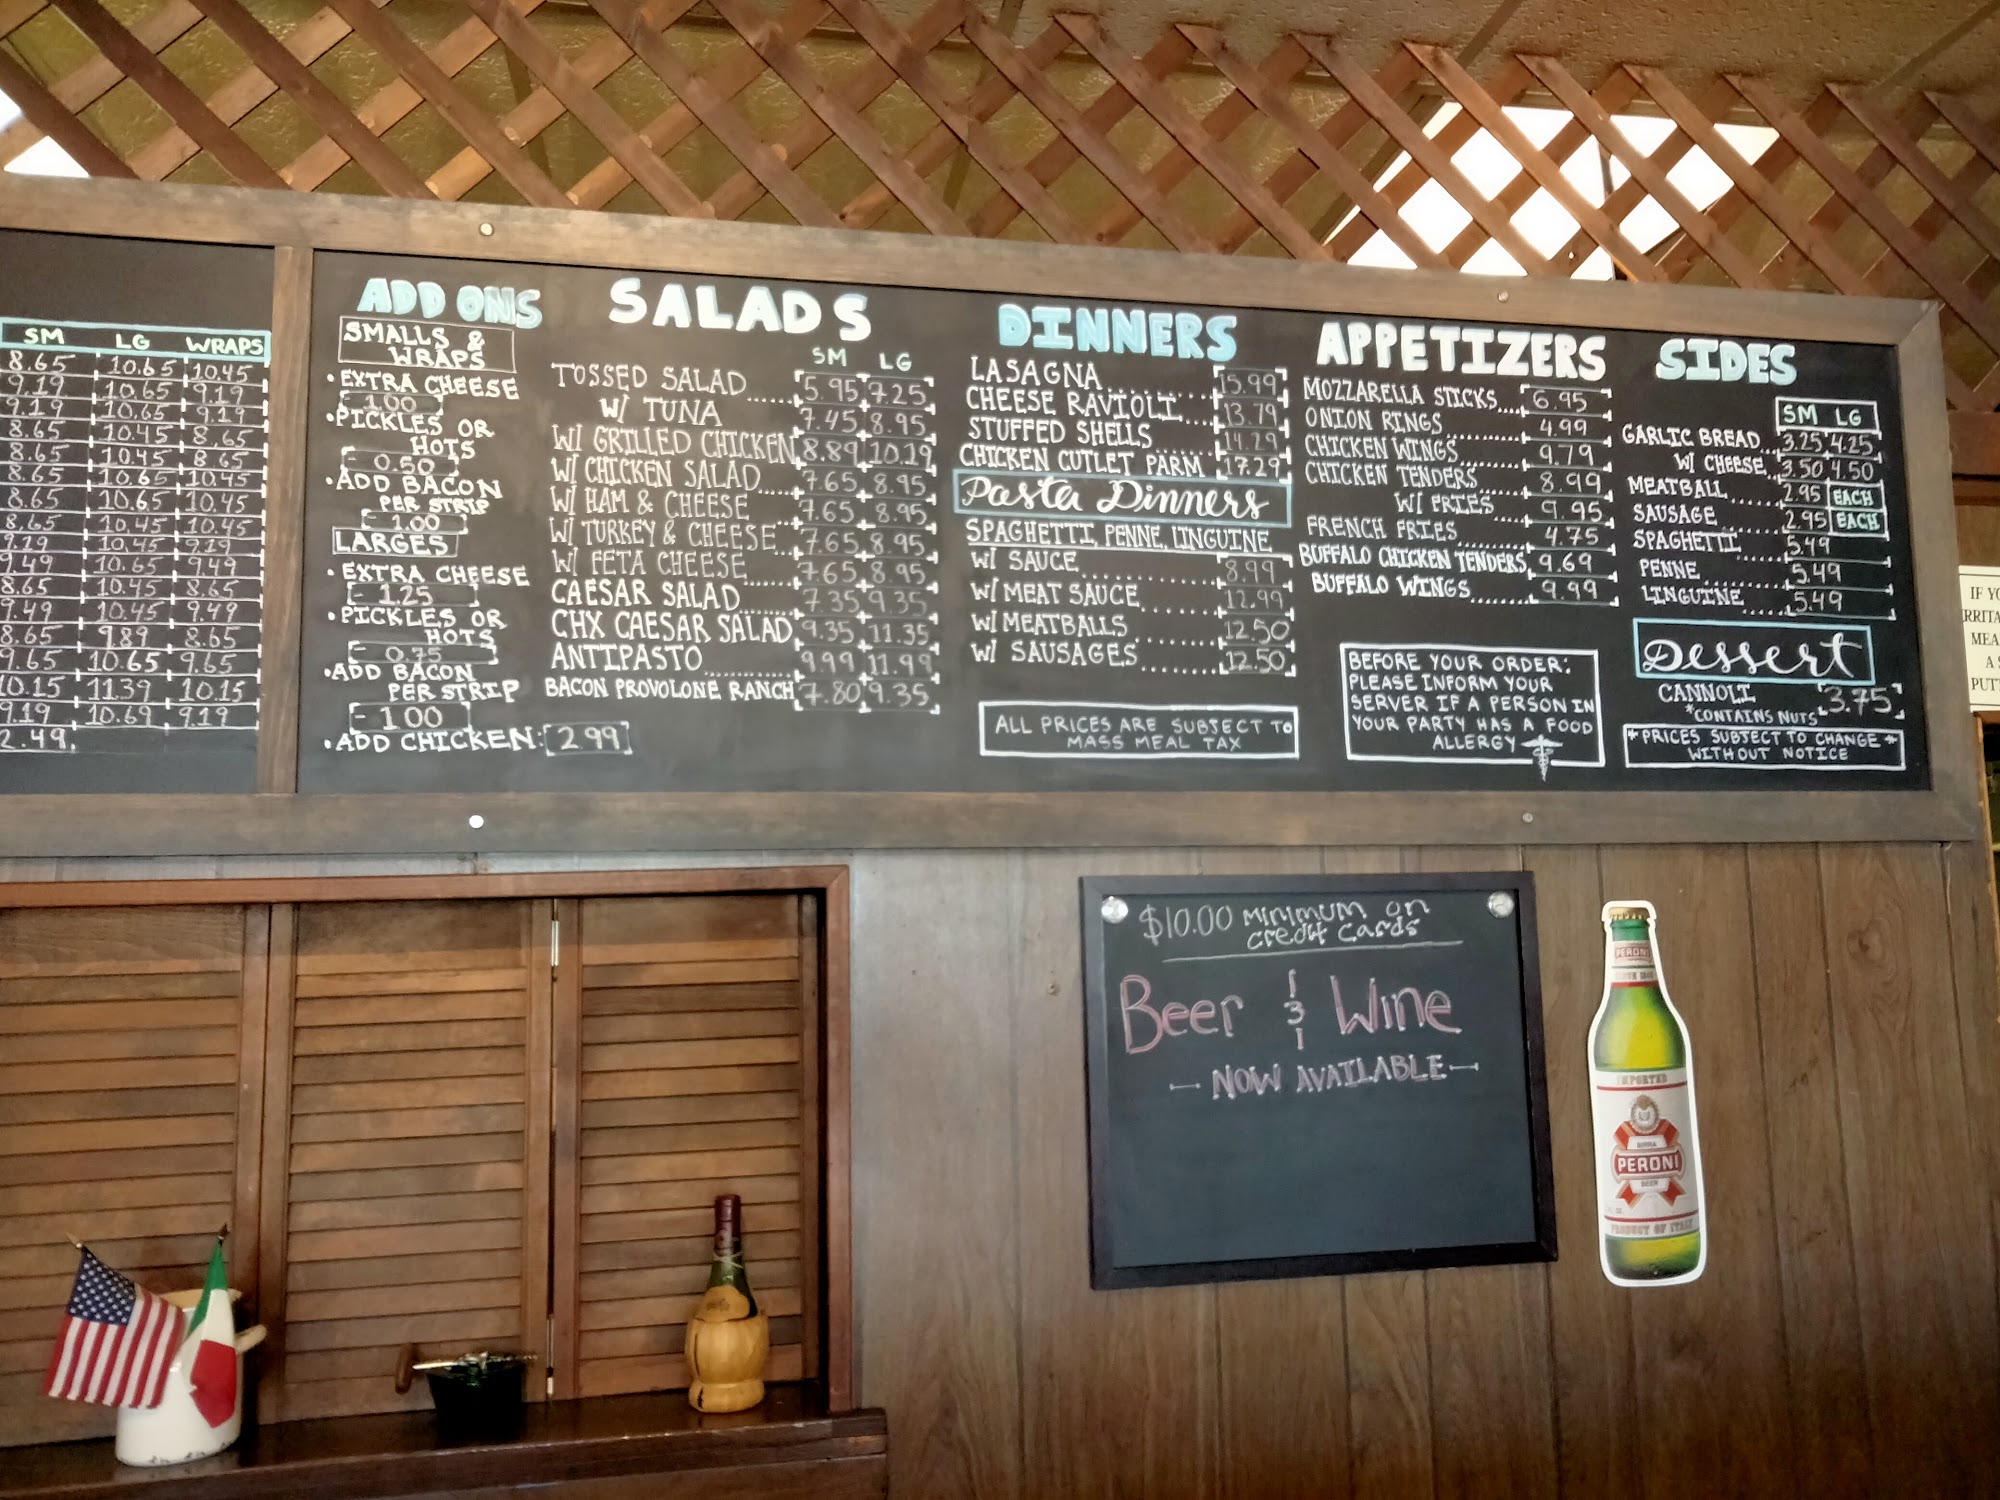 SM LG WRAPS
8.65 10.65 10.45
9.19 10.65 9.19
9.19 10.65 9.19
8.65 10.45 8.65
8.65 10.45 8.65
8.65 10.65 10.45
8.65 10.65 10.45
8.65 10.45 10.45
9.19 10.45 9.19
9.49 10.65 9.49
8.65 10.45 8.65
9.49 10.45 9.49
8.65 9.89 8.65
9.65 10.65 9.65
10.15 11.39 10.15
9.19 10.69 9.19
2.49
ADD ONS
SMALLS &
WRAPS
• EXTRA CHEESE
- 1.00
• PICKLES OR
HOTS
- 0.50
• ADD BACON
PER STRIP
- 1.00
LARGES
• EXTRA CHEESE
- 1.25
• PICKLES OR
HOTS
- 0.75
• ADD BACON
PER STRIP
- 1.00
• ADD CHICKEN: 2.99
SALADS
SM LG
TOSSED SALAD...... 5.95 7.25
W/ TUNA 7.45 8.95
W/ GRILLED CHICKEN 8.89 10.19
W/ CHICKEN SALAD..... 7.65 8.95
W/ HAM & CHEESE 7.65 8.95
W/ TURKEY & CHEESE... 7.65 8.95
W/ FETA CHEESE....... 7.65 8.95
CAESAR SALAD........ 7.35 9.35
CHX CAESAR SALAD 9.35 11.35
ANTIPASTO............ 9.99 11.99
BACON PROVOLONE RANCH 7.80 9.35
DINNERS
LASAGNA............ 15.99
CHEESE RAVIOLI...... 13.79
STUFFED SHELLS 14.29
CHICKEN CUTLET PARM 17.29
Pasta Dinners
SPAGHETTI, PENNE, LINGUINE
W/ SAUCE............ 8.99
W/ MEAT SAUCE....... 12.99
W/ MEATBALLS........ 12.50
W/ SAUSAGES........ 12.50
ALL PRICES ARE SUBJECT TO
MASS MEAL TAX
APPETIZERS
MOZZARELLA STICKS... 6.95
ONION RINGS......... 4.99
CHICKEN WINGS....... 9.79
CHICKEN TENDERS..... 8.99
W/ FRIES.... 9.95
FRENCH FRIES........ 4.75
BUFFALO CHICKEN TENDERS 9.69
BUFFALO WINGS....... 9.99
BEFORE YOUR ORDER:
PLEASE INFORM YOUR
SERVER IF A PERSON IN
YOUR PARTY HAS A FOOD
ALLERGY
SIDES
SM LG
GARLIC BREAD... 3.25 4.25
W/ CHEESE 3.50 4.50
MEATBALL...... 2.95 EACH
SAUSAGE....... 2.95 EACH
SPAGHETTI...... 5.49
PENNE......... 5.49
LINGUINE...... 5.49
Dessert
CANNOLI 3.75
*CONTAINS NUTS
*PRICES SUBJECT TO CHANGE*
WITHOUT NOTICE
IF YO
RRITA
MEA
A S
PUTT
$10.00 Minimum on
Credit Cards
Beer & Wine
NOW AVAILABLE
PERONI
IMPORTED
BIRRA
PERONI
BEER
PRODUCT OF ITALY